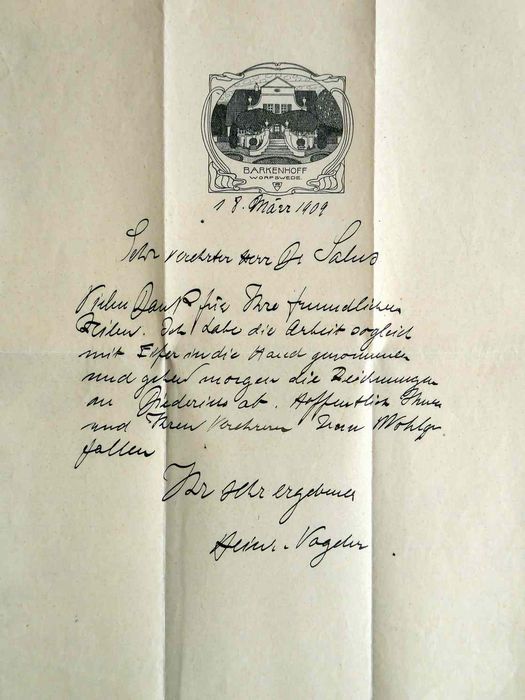 BARKENHOFF
WORPSWEDE.
18. März 1909
Sehr verehrter Herr Dr Salus
Vielen Dank für Ihre freundlichen
Zeilen. Ich habe die Arbeit sogleich
mit Eifer in die Hand genommen
und gehen morgen die Zeichnungen
an Diederichs ab. Hoffentlich Ihnen
und Ihren Verehrern zum Wohlge
fallen
Ihr sehr ergebener
Heinr. Vogeler